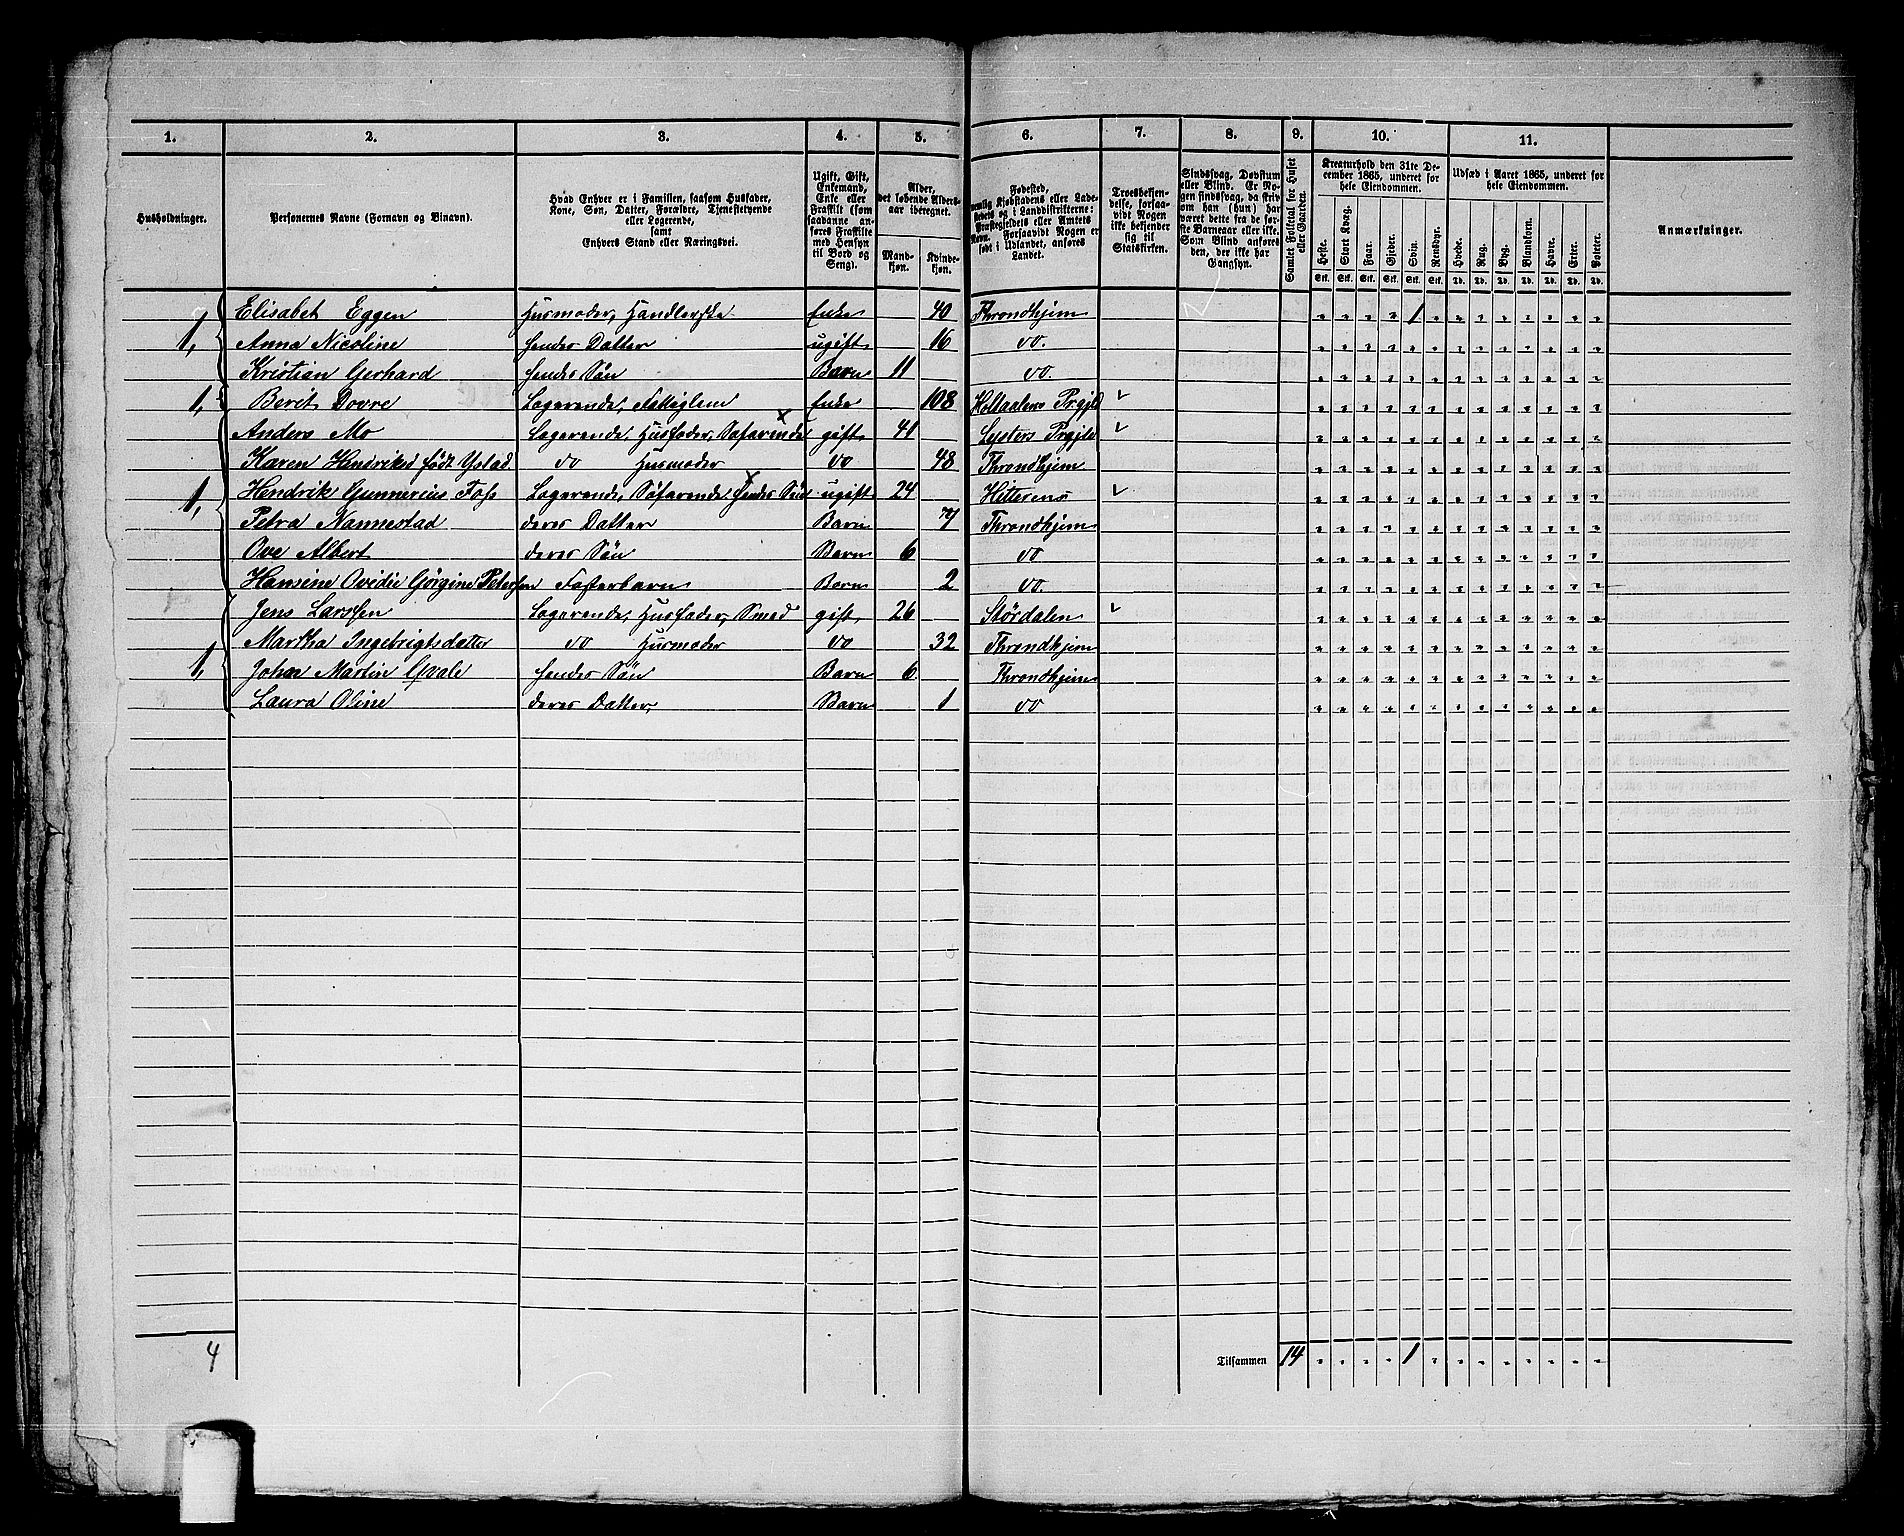 1. 2. 3. 4. 5. 6. 7. 8. 9. 10. 11.
Husholdninger.
Personernes Navne (Fornavn og Binavn).
Hvad Enhver er i Familien, saasom Husfader,
Kone, Søn, Datter, Forældre, Tjenestetyende
eller Logerende,
samt
Enhvers Stand eller Næringsvei.
Ugift, Gift,
Enkemand,
Enke eller
Fraskilt (som
saadanne an-
føres Fraskilte
med Hensyn
til Bord og
Seng).
Alder,
det løbende Alders-
aar iberegnet.
Mand-
kjøn.
Kvinde-
kjøn.
Fødested,
nemlig Kjøbstadens eller Lade-
stedets og i Landdistrikterne:
Præstegjeldets eller Amtets
Navn. Forsaavidt Nogen er
født i Udlandet, anføres
Landet.
Troesbekjen-
delse, forsaa-
vidt Nogen
ikke bekjender
sig til
Statskirken.
Sindssvag, Døvstum
eller Blind. Er No-
gen sindssvag, da skriv
om han (hun) har
været dette fra de før-
ste Barneaar eller ikke.
Som Blind anføres
den, der ikke har
Gangsyn.
Samlet Folketal for Huset
eller Gaarden.
Kreaturhold den 31te De-
cember 1865, underet for
hele Eiendommen.
Heste. Stort Kvæg. Faar. Gjeder. Sviin. Rensdyr.
Stk. Stk. Stk. Stk. Stk. Stk.
Udsæd i Aaret 1865, underet for
hele Eiendommen.
Hvede. Rug. Byg. Blandkorn. Havre. Erter. Poteter.
Td. Td. Td. Td. Td. Td. Td.
Anmærkninger.
Elisabet Eggen Husmoder, Handlerske Enke 40 Throndhjem 1
1, Anna Nicoline hendes Datter ugift 16 do.
Kristian Gerhard hendes Søn Barn 11 do.
1, Berit Dovre Logerende, Fattiglem Enke 108 Holtaalens Prgjld
Anders Mo Logerende, Husfader, Søfarende gift 41 Lysters Prgjld
Karen Hendriksd født Ystad do Husmoder do 48 Throndhjem
1, Hendrik Gunnerius Foss Logerende, Søfarende hendes Søn ugift 24 Hitterens
Petra Nannestad deres Datter Barn 7 Throndhjem
Ove Albert deres Søn Barn 6 do
Hansine Ovidie Gjørgine Petersen Fosterbarn Barn 2 do.
Jens Larssen Logerende, Husfader, Smed gift 26 Størdalen
Martha Ingebrigtsdatter do Husmoder do 32 Throndhjem
1, Johan Martin Qvale hendes Søn Barn 6 Throndhjem
Laura Oline deres Datter Barn 1 do
4 Tilsammen 14 1